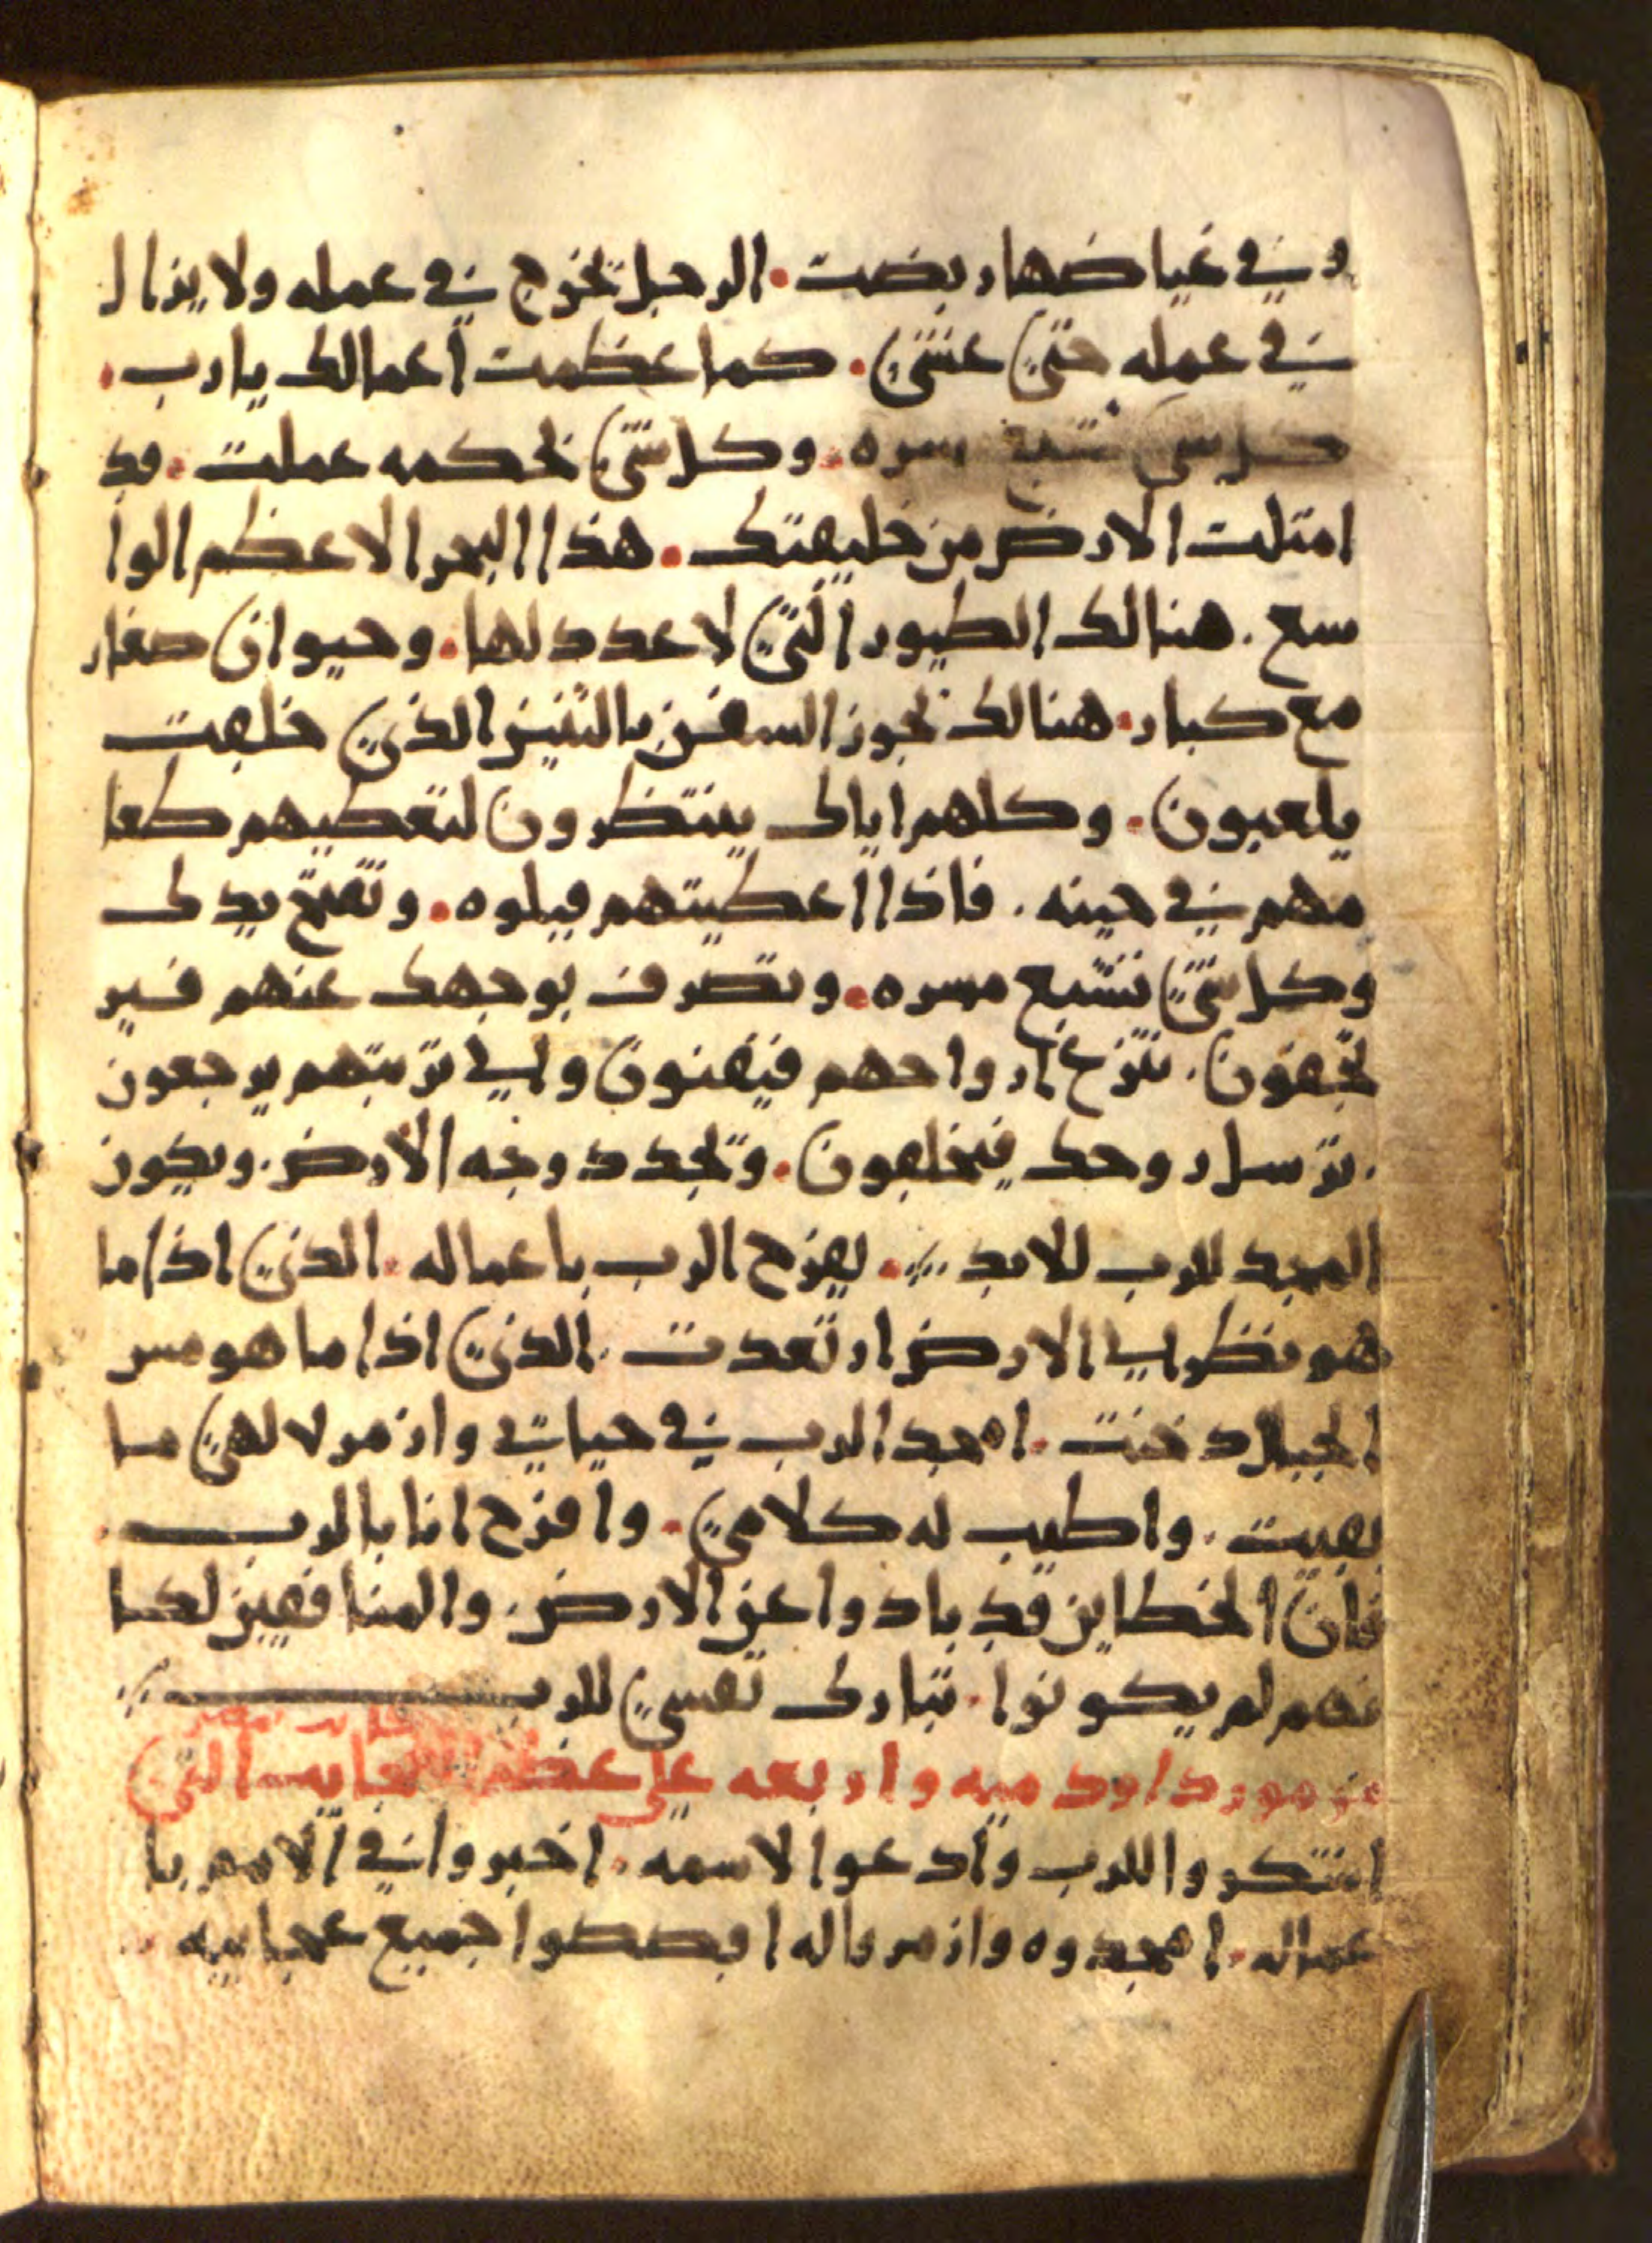 وفي غياضها ربضت. الرجل يخرج في عمله ولا يزال
في عمله حتى عشي. كما عظمت اعمالك يا رب.
كل شي تشبع مسره. وكل شي بحكمه عملت. قد
امتلت الارض من خليقتك. هذا البحر الاعظم الوا
سع. هنالك الطيور التي لا عدد لها. وحيوان صغار
مع كبار. هنالك تجوز السفن بالتنين الذي خلقت
يلعبون. وكلهم اياك ينتظرون لتعطيهم طعا
مهم في حينه. فاذا اعطيتهم قبلوه. وتفتح يدك
وكل شي تشبع مسره. وتصرف بوجهك عنهم فير
تجفون. تنزع ارواحهم فيفنون والى تربتهم يرجعون
. ترسل روحك فيخلقون. وتجدد وجه الارض. ويكون
المجد للرب للابد. يفرح الرب باعماله. الذي اذا ما
هو نظر الى الارض ارتعدت. الذي اذا ما هو مس
الجبال دخنت. امجد الرب في حياتي وازمر لالهي ما
بقيت. واطيب له كلامي. وافرح انا بالرب.
فان الخطاين قد بادوا عن الارض. والمنافقين لكا
نهم لم يكونوا. تبارك نفسي للرب
مزمور داود ميه واربعه على عظم العجايب التي
اشكروا للرب وادعوا لاسمه. اخبروا في الامم با
عماله. امجدوه وازمروا له اقصصوا جميع عجايبه